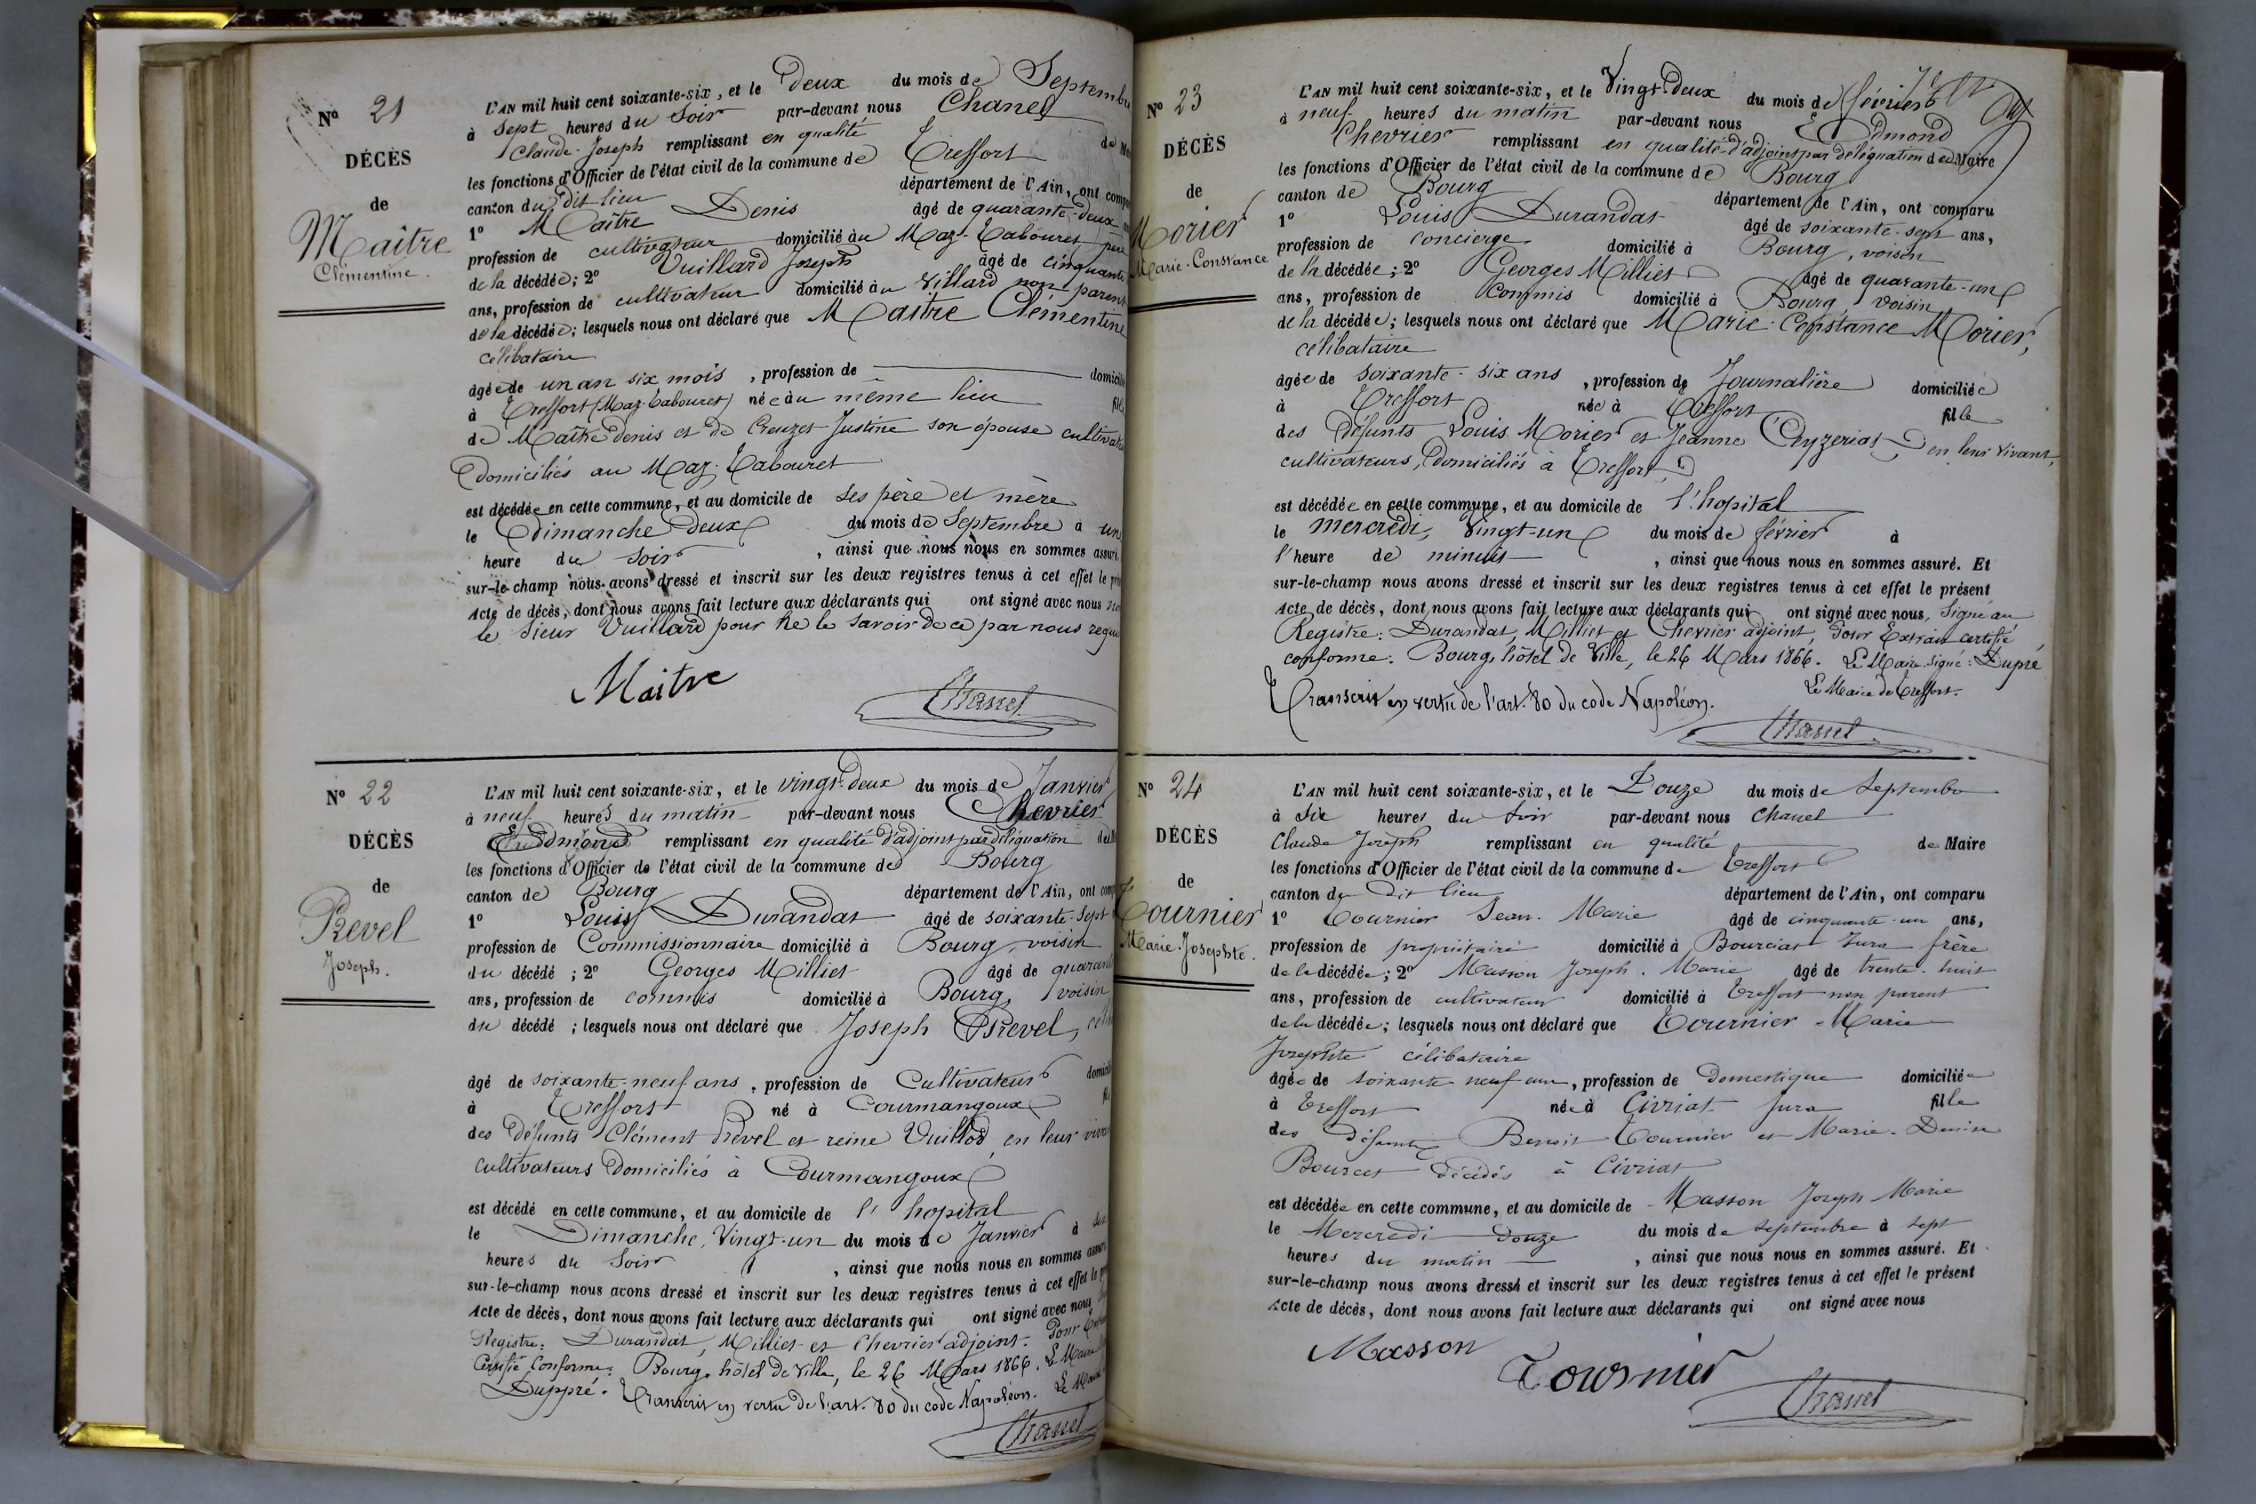 Nº 21
DÉCÈS
de
Maître
Clémentine.
L'AN mil huit cent soixante-six, et le deux du mois de Septembre
à sept heures du soir par-devant nous Chanel
Claude-Joseph remplissant en qualité de
les fonctions d'Officier de l'état civil de la commune de Treffort
canton du dit lieu département de l'Ain, ont
1º Maître Denis âgé de quarante-deux
profession de cultivateur domicilié au Maz-Tabouret père
de la décédée; 2º Vuillard Joseph âgé de cinquante
ans, profession de cultivateur domicilié au Villard non parent
de la décédée; lesquels nous ont déclaré que Maitre Clémentine
célibataire
âgée de un an six mois, profession de
à Treffort (Maz-Tabouret) née au même lieu
de Maître Denis et de Creuzet Justine son épouse
Domiciliés au Maz-Tabouret
est décédée en cette commune, et au domicile de ses père et mère
le Dimanche deux du mois de Septembre à une
heure du soir, ainsi que nous nous en sommes
sur-le-champ nous avons dressé et inscrit sur les deux registres tenus à cet effet le
Acte de décès, dont nous avons fait lecture aux déclarants qui ont signé avec nous
le Sieur Vuillard pour ne le savoir de ce par nous
Maitre
Chanel
Nº 22
DÉCÈS
de
Prevel
Joseph.
L'AN mil huit cent soixante-six, et le vingt-deux du mois de Janvier
à neuf heures du matin par-devant nous Chevrier
Edmond remplissant en qualité d'adjoint par délégation
les fonctions d'Officier de l'état civil de la commune de Bourg
canton de Bourg département de l'Ain, ont
1º Louis Durandat âgé de soixante-sept
profession de Commissionnaire domicilié à Bourg, voisin
du décédé; 2º Georges Milliet âgé de
ans, profession de commis domicilié à Bourg, voisin
du décédé; lesquels nous ont déclaré que Joseph Prevel,
âgé de soixante-neuf ans, profession de Cultivateur
à Treffort né à Courmangoux
des défunts Clément Prevel et reine Vuillod en leur
cultivateurs Domiciliés à Courmangoux
est décédé en cette commune, et au domicile de l'hopital
le Dimanche, Vingt-un du mois de Janvier à
heures du soir, ainsi que nous nous en sommes
sur-le-champ nous avons dressé et inscrit sur les deux registres tenus à cet effet le
Acte de décès, dont nous avons fait lecture aux déclarants qui ont signé avec nous
Registre: Durandat, Milliet et Chevrier adjoint. Pour
Certifié Conforme: Bourg, hôtel de Ville, le 26 Mars 1866. Le Maire
Duppré. Transcrit en vertu de l'art. 80 du code Napoléon. Le
Chanel
Nº 23
DÉCÈS
de
Morier
Marie-Constance
L'AN mil huit cent soixante-six, et le Vingt-Deux du mois de février
à neuf heures du matin par-devant nous Edmond
Chevrier remplissant en qualité d'adjoint par délégation du Maire
les fonctions d'Officier de l'état civil de la commune de Bourg
canton de Bourg département de l'Ain, ont comparu
1º Louis Durandat âgé de soixante-sept ans,
profession de concierge domicilié à Bourg, voisin
de la décédée; 2º Georges Milliet âgé de quarante-un
ans, profession de commis domicilié à Bourg, voisin
de la décédée; lesquels nous ont déclaré que Marie-Constance Morier,
célibataire
âgée de soixante-six ans, profession de Journalière domiciliée
à Treffort née à Treffort fille
des Défunts Louis Morier et Jeanne Ceyzeriat en leur vivant,
cultivateurs, Domiciliés à Treffort
est décédée en cette commune, et au domicile de l'hopital
le mercredi, Vingt-un du mois de février à
l'heure de minuit, ainsi que nous nous en sommes assuré. Et
sur-le-champ nous avons dressé et inscrit sur les deux registres tenus à cet effet le présent
Acte de décès, dont nous avons fait lecture aux déclarants qui ont signé avec nous, Signé au
Registre: Durandat, Milliet et Chevrier adjoint, Pour Extrait certifié
conforme: Bourg, hôtel de Ville, le 26 Mars 1866. Le Maire signé: Dupré
Le Maire de Treffort.
Transcrit en vertu de l'art. 80 du code Napoléon.
Chanel
Nº 24
DÉCÈS
de
Tournier
Marie-Josephte.
L'AN mil huit cent soixante-six, et le Douze du mois de Septembre
à Six heures du soir par-devant nous Chanel
Claude Joseph remplissant en qualité de Maire
les fonctions d'Officier de l'état civil de la commune de Treffort
canton du Dit lieu département de l'Ain, ont comparu
1º Tournier Jean-Marie âgé de cinquante-un ans,
profession de propriétaire domicilié à Bourciat Jura frère
de la décédée; 2º Masson Joseph-Marie âgé de trente-huit
ans, profession de cultivateur domicilié à Treffort non parent
de la décédée; lesquels nous ont déclaré que Tournier Marie
Josephte célibataire
âgée de soixante neuf ans, profession de Domestique domiciliée
à Treffort née à Civriat Jura fille
des défunts Benoit Tournier et Marie-Denise
Bourcet décédés à Civriat
est décédée en cette commune, et au domicile de Masson Joseph Marie
le Mercredi douze du mois de septembre à sept
heures du matin, ainsi que nous nous en sommes assuré. Et
sur-le-champ nous avons dressé et inscrit sur les deux registres tenus à cet effet le présent
Acte de décès, dont nous avons fait lecture aux déclarants qui ont signé avec nous
Masson
Tournier
Chanel